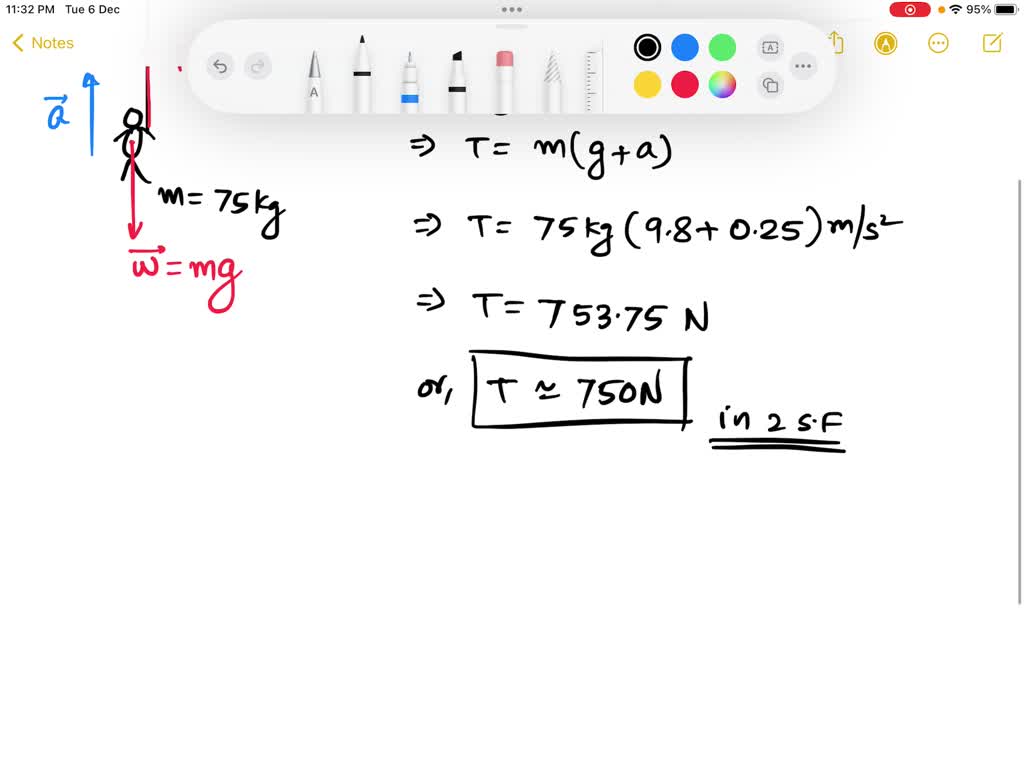 11:32 PM Tue 6 Dec
95%
Notes
A
A
a
m = 75kg
w = mg
⇒ T = m(g+a)
⇒ T = 75kg (9.8 + 0.25) m/s²
⇒ T = 753.75 N
or, T ≃ 750N
in 2 S.F